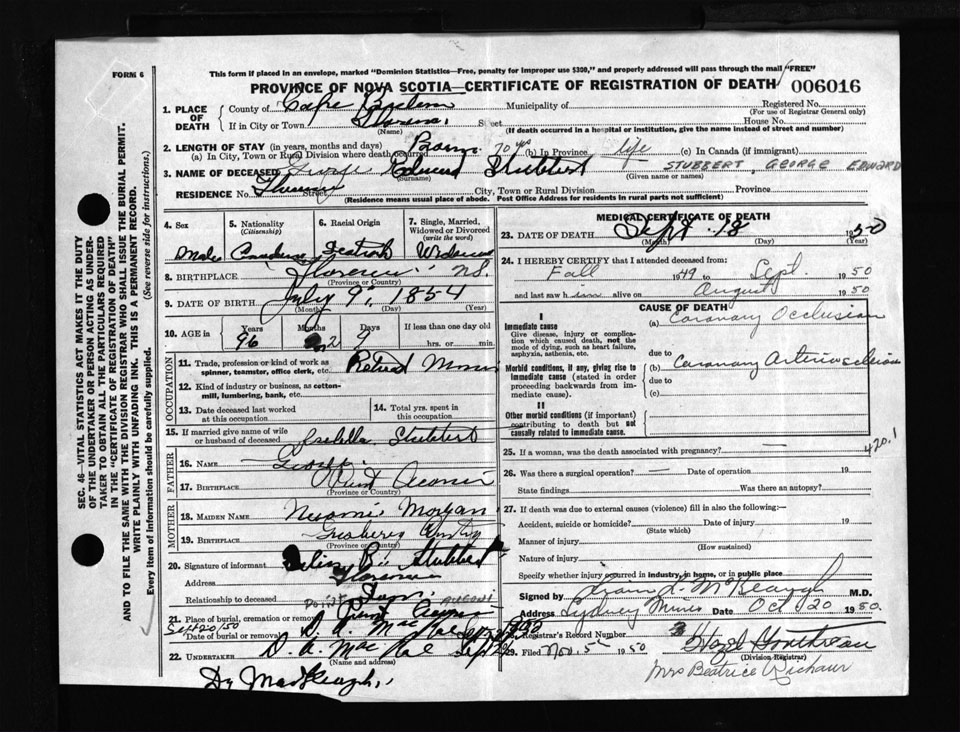 FORM 6
This form if placed in an envelope, marked "Dominion Statistics—Free, penalty for improper use $300," and properly addressed will pass through the mail "FREE"
PROVINCE OF NOVA SCOTIA—CERTIFICATE OF REGISTRATION OF DEATH 006016
SEC. 46—VITAL STATISTICS ACT MAKES IT THE DUTY
OF THE UNDERTAKER OR PERSON ACTING AS UNDER-
TAKER TO OBTAIN ALL THE PARTICULARS REQUIRED
IN THE "CERTIFICATE OF REGISTRATION OF DEATH"
AND TO FILE THE SAME WITH THE DIVISION REGISTRAR WHO SHALL ISSUE THE BURIAL PERMIT.
WRITE PLAINLY WITH UNFADING INK. THIS IS A PERMANENT RECORD.
Every item of Information should be carefully supplied. (See reverse side for instructions.)
1. PLACE OF DEATH
County of Cape Breton Municipality of Registered No.
(For use of Registrar General only)
If in City or Town Florence Street House No.
(Name) (If death occurred in a hospital or institution, give the name instead of street and number)
2. LENGTH OF STAY (in years, months and days)
(a) In City, Town or Rural Division where death occurred 70 yrs (b) In Province life (c) In Canada (if immigrant)
3. NAME OF DECEASED George Edward Stubbert STUBBERT, GEORGE EDWARD
(Surname) (Given name or names)
RESIDENCE No. Florence Street City, Town or Rural Division Province
(Residence means usual place of abode. Post Office Address for residents in rural parts not sufficient)
4. Sex
Male
5. Nationality
(Citizenship)
Canadian
6. Racial Origin
7. Single, Married, Widowed or Divorced
(write the word)
Widower
8. BIRTHPLACE Florence N.S.
(Province or Country)
9. DATE OF BIRTH July 9, 1854
(Month) (Day) (Year)
10. AGE in
Years Months Days If less than one day old
96 2 9 hrs. or min.
OCCUPATION
11. Trade, profession or kind of work as spinner, teamster, office clerk, etc. Retired Miner
12. Kind of industry or business, as cotton-mill, lumbering, bank, etc.
13. Date deceased last worked at this occupation
14. Total yrs. spent in this occupation
15. If married give name of wife or husband of deceased Isabella Stubbert
FATHER
16. NAME George
17. BIRTHPLACE Point Aconi
(Province or Country)
MOTHER
18. MAIDEN NAME Naomi Morgan
19. BIRTHPLACE
(Province or Country)
20. Signature of informant Stubbert
Address Florence
Relationship to deceased
POINT ACONI
21. Place of burial, cremation or removal Point Aconi
Sept 20/50
Date of burial or removal
22. UNDERTAKER D. A. MacRae
(Name and address)
MEDICAL CERTIFICATE OF DEATH
23. DATE OF DEATH Sept. 18 1950
(Month) (Day) (Year)
24. I HEREBY CERTIFY that I attended deceased from:
Fall 1949 to Sept. 1950
and last saw him alive on August 1950
CAUSE OF DEATH
I
Immediate cause
Give disease, injury or complication which caused death, not the mode of dying, such as heart failure, asphyxia, asthenia, etc.
(a) Coronary Occlusion
due to
Morbid conditions, if any, giving rise to immediate cause (stated in order proceeding backwards from immediate cause).
(b) Coronary Arteriosclerosis
due to
(c)
II
Other morbid conditions (if important) contributing to death but not causally related to immediate cause.
420.1
25. If a woman, was the death associated with pregnancy?
26. Was there a surgical operation? — Date of operation 19
State findings Was there an autopsy?
27. If death was due to external causes (violence) fill in also the following:—
Accident, suicide or homicide? Date of injury 19
(State which)
Manner of injury
(How sustained)
Nature of injury
Specify whether injury occurred in industry, in home, or in public place
Signed by M.D.
Address Sydney Mines Date Oct 20 1950.
28. Registrar's Record Number
29. Filed Nov. 5 1950
(Division Registrar)
Mrs Beatrice